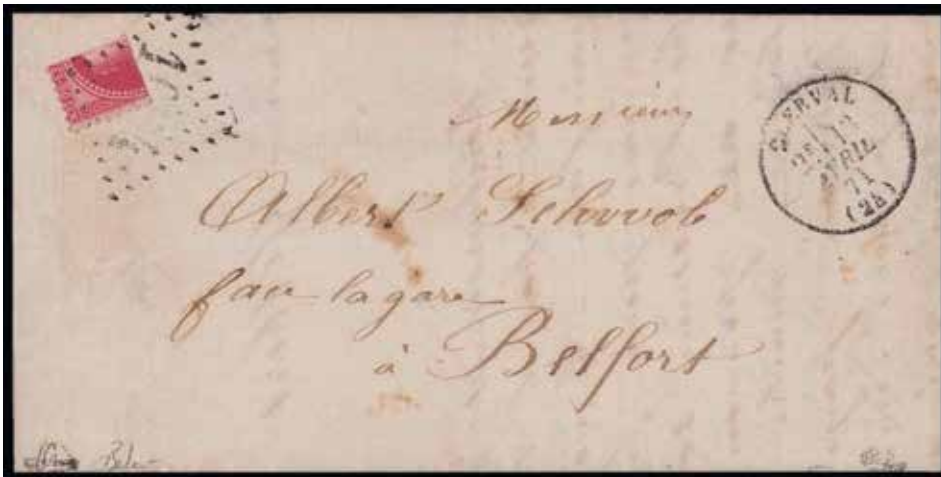 Monsieur
Albert Schwob
face la gare
à Belfort
CLERVAL
AVRIL
71
(24)